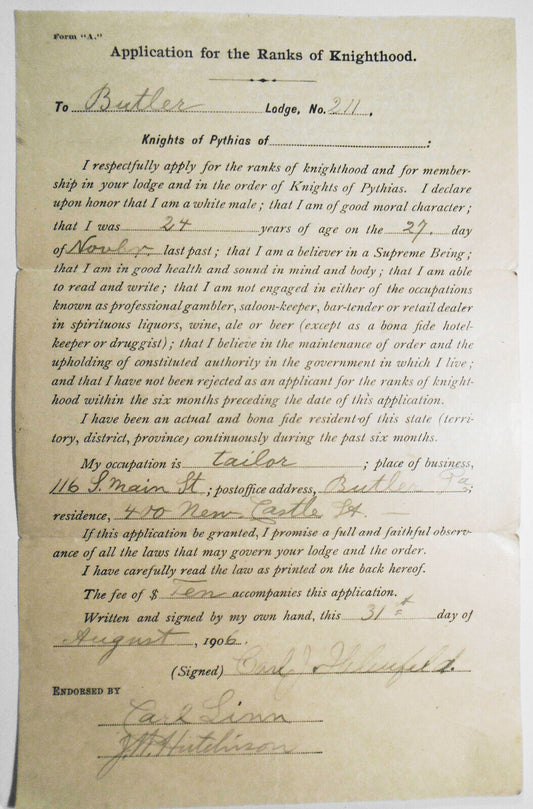 Form "A."
Application for the Ranks of Knighthood.
To Butler Lodge, No. 211.
Knights of Pythias of :
I respectfully apply for the ranks of knighthood and for member-
ship in your lodge and in the order of Knights of Pythias. I declare
upon honor that I am a white male; that I am of good moral character;
that I was 24 years of age on the 27. day
of Novbr. last past; that I am a believer in a Supreme Being;
that I am in good health and sound in mind and body; that I am able
to read and write; that I am not engaged in either of the occupations
known as professional gambler, saloon-keeper, bar-tender or retail dealer
in spirituous liquors, wine, ale or beer (except as a bona fide hotel-
keeper or druggist); that I believe in the maintenance of order and the
upholding of constituted authority in the government in which I live;
and that I have not been rejected as an applicant for the ranks of knight-
hood within the six months preceding the date of this application.
I have been an actual and bona fide resident of this state (terri-
tory, district, province) continuously during the past six months.
My occupation is tailor; place of business,
116 S. Main St; postoffice address, Butler Pa;
residence, 400 New Castle St.
If this application be granted, I promise a full and faithful observ-
ance of all the laws that may govern your lodge and the order.
I have carefully read the law as printed on the back hereof.
The fee of $ Ten accompanies this application.
Written and signed by my own hand, this 31st day of
August, 1906.
(Signed) Carl J.
ENDORSED BY
Carl Linn
J.W. Hutchison